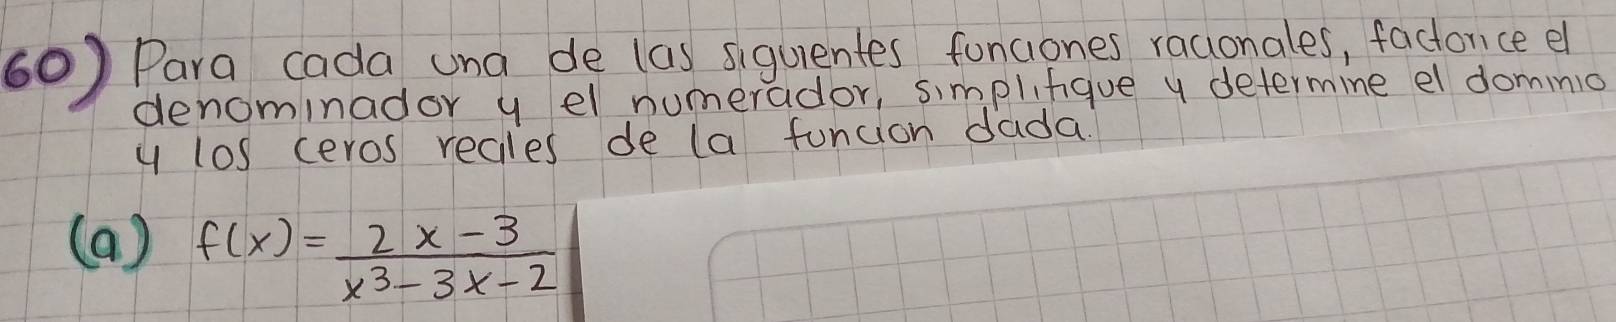 60) Para cada una de las siguientes funciones racionales, factorice el
denominador y el numerador, simplifique y determine el dominio
y los ceros reales de la función dada.
(a) f(x) = \frac{2x-3}{x^3-3x-2}